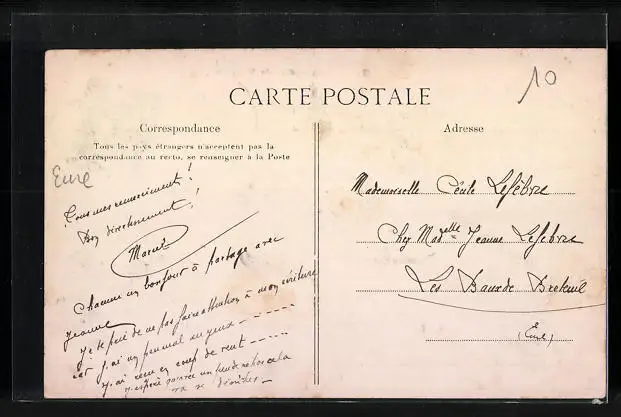 10
CARTE POSTALE
Correspondance
Tous les pays étrangers n'acceptent pas la
correspondance au recto, se renseigner à la Poste
Eure
Tous mes remerciements!
Bon divertissement!
Marcel
Chacun un bonjour à partage avec
Jeanne
Je te prie de ne pas faire attention à mon écriture
car j'ai un peu mal aux yeux
j'ai reçu un coup de vent
j'espère qu'avec un peu de repos cela
va se
Adresse
Mademoiselle Cécile Lefèbvre
Chez Mad^elle Jeanne Lefebvre
Les Baux de Breteuil
(Eure)